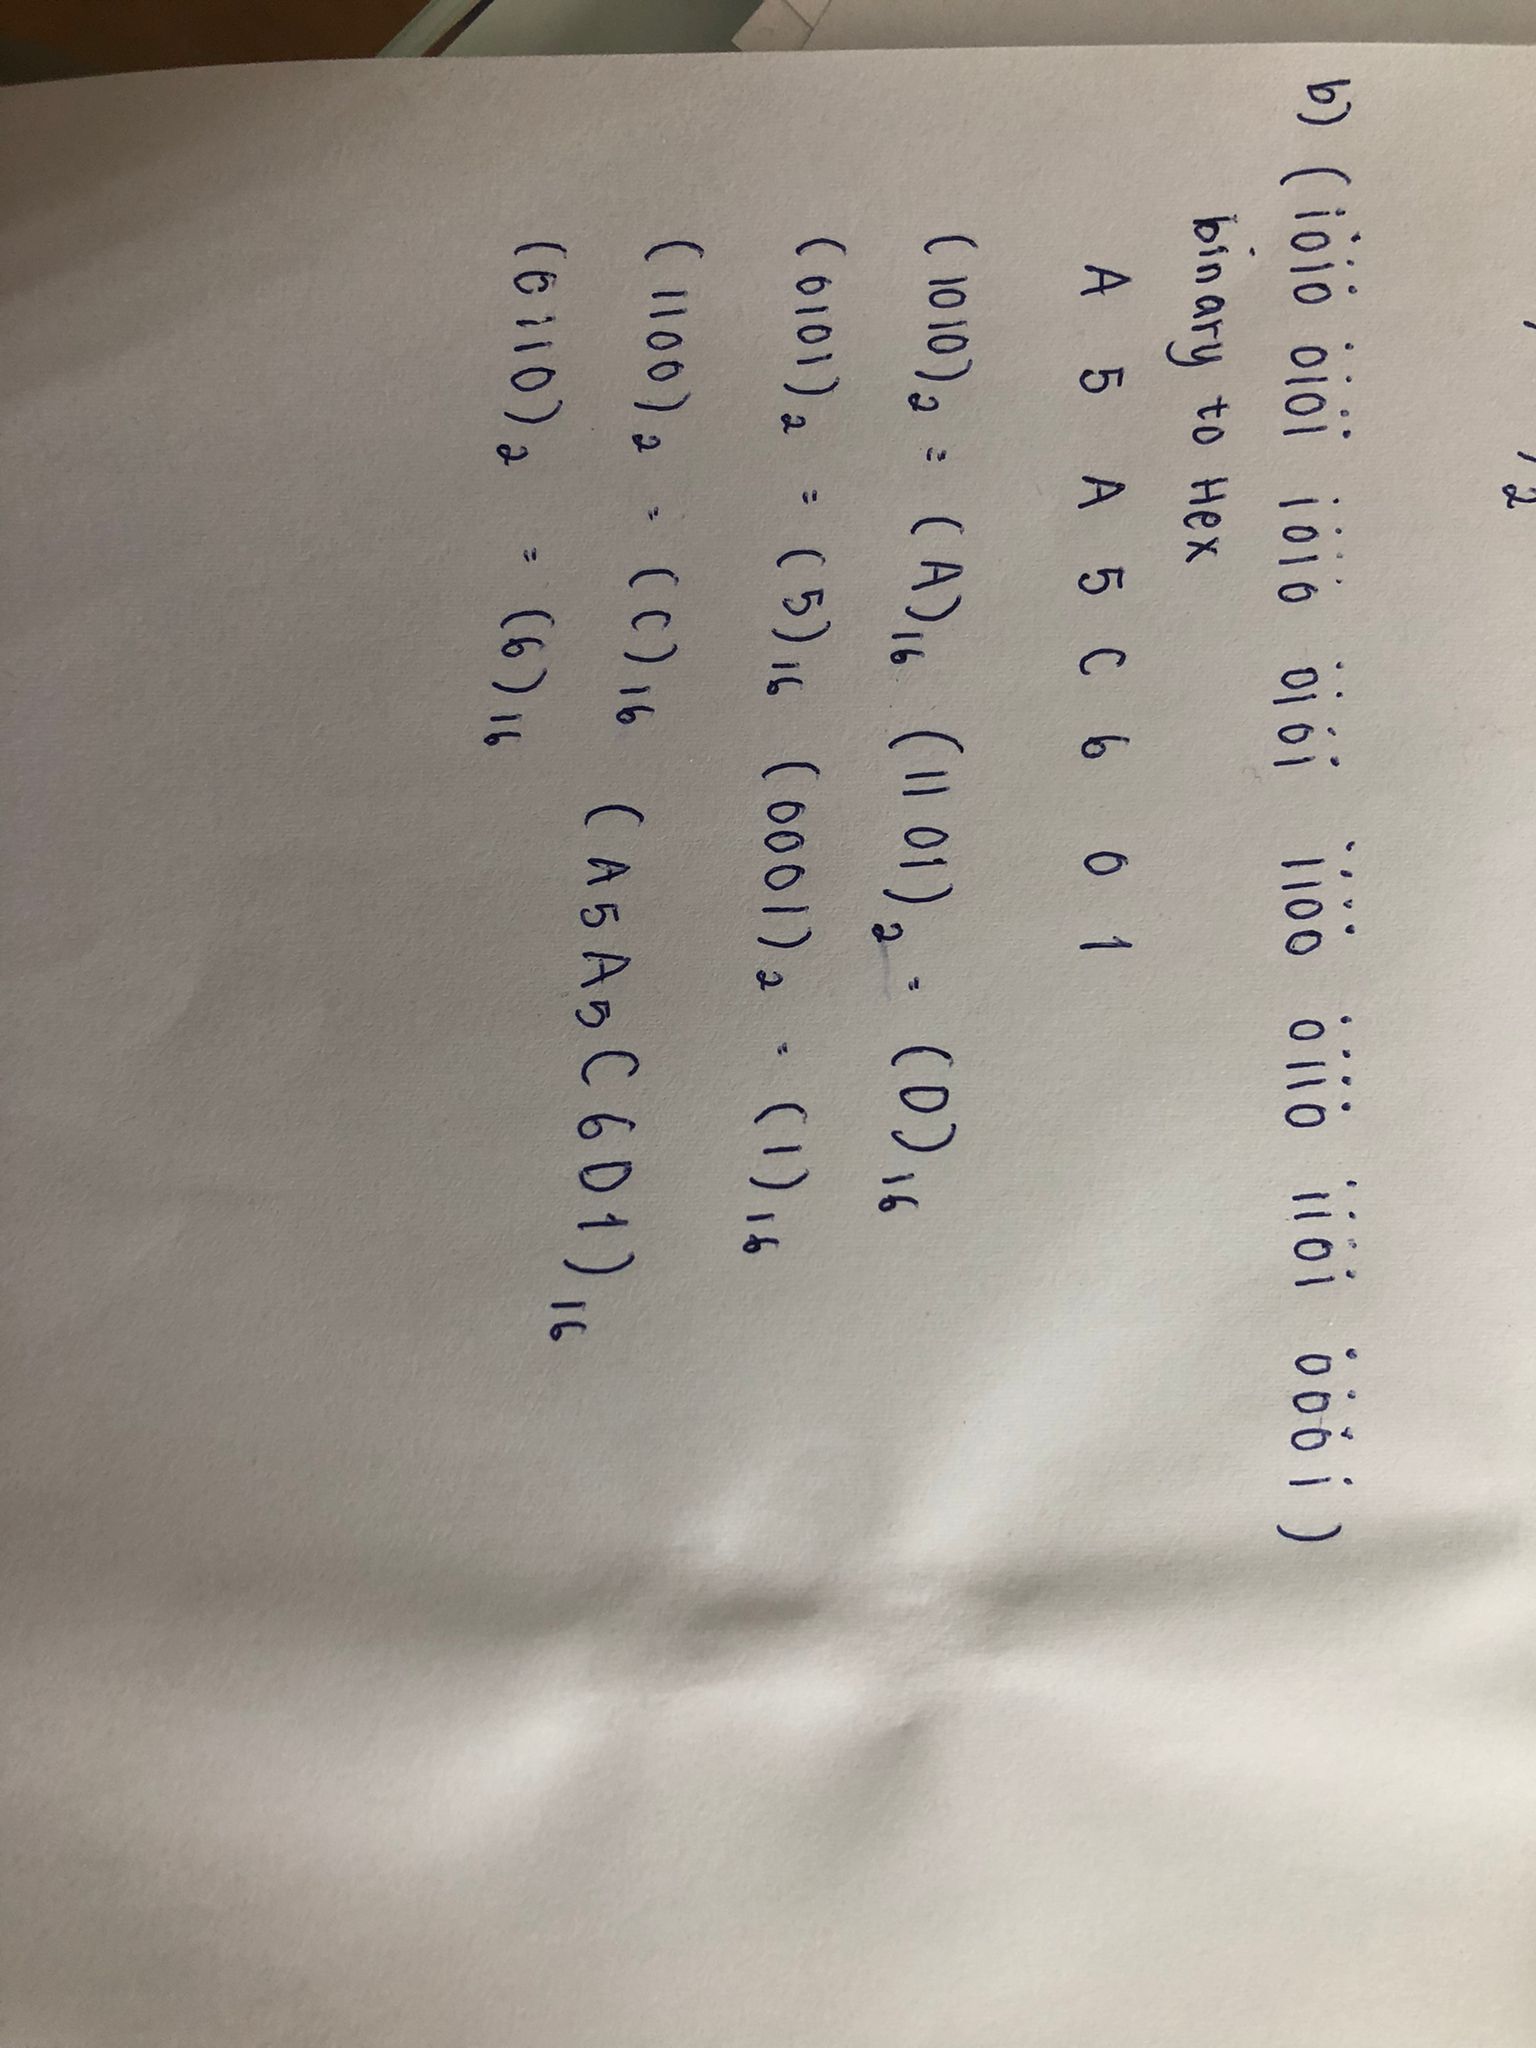 b) (1010 0101 1010 0101 1100 0110 1101 0001)
binary to Hex
A 5 A 5 C 6 D 1
(1010)2 = (A)16 (1101)2 = (D)16
(0101)2 = (5)16 (0001)2 = (1)16
(1100)2 = (C)16 (A5A5C6D1)16
(0110)2 = (6)16